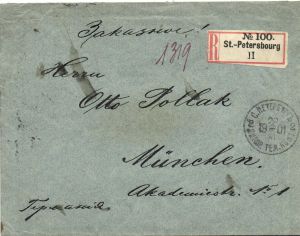 Заказное!
№ 100.
R
St.-Petersbourg
II
1319
Herrn
Otto Pollak
München.
Akademiestr. № 1
Германія
19 01